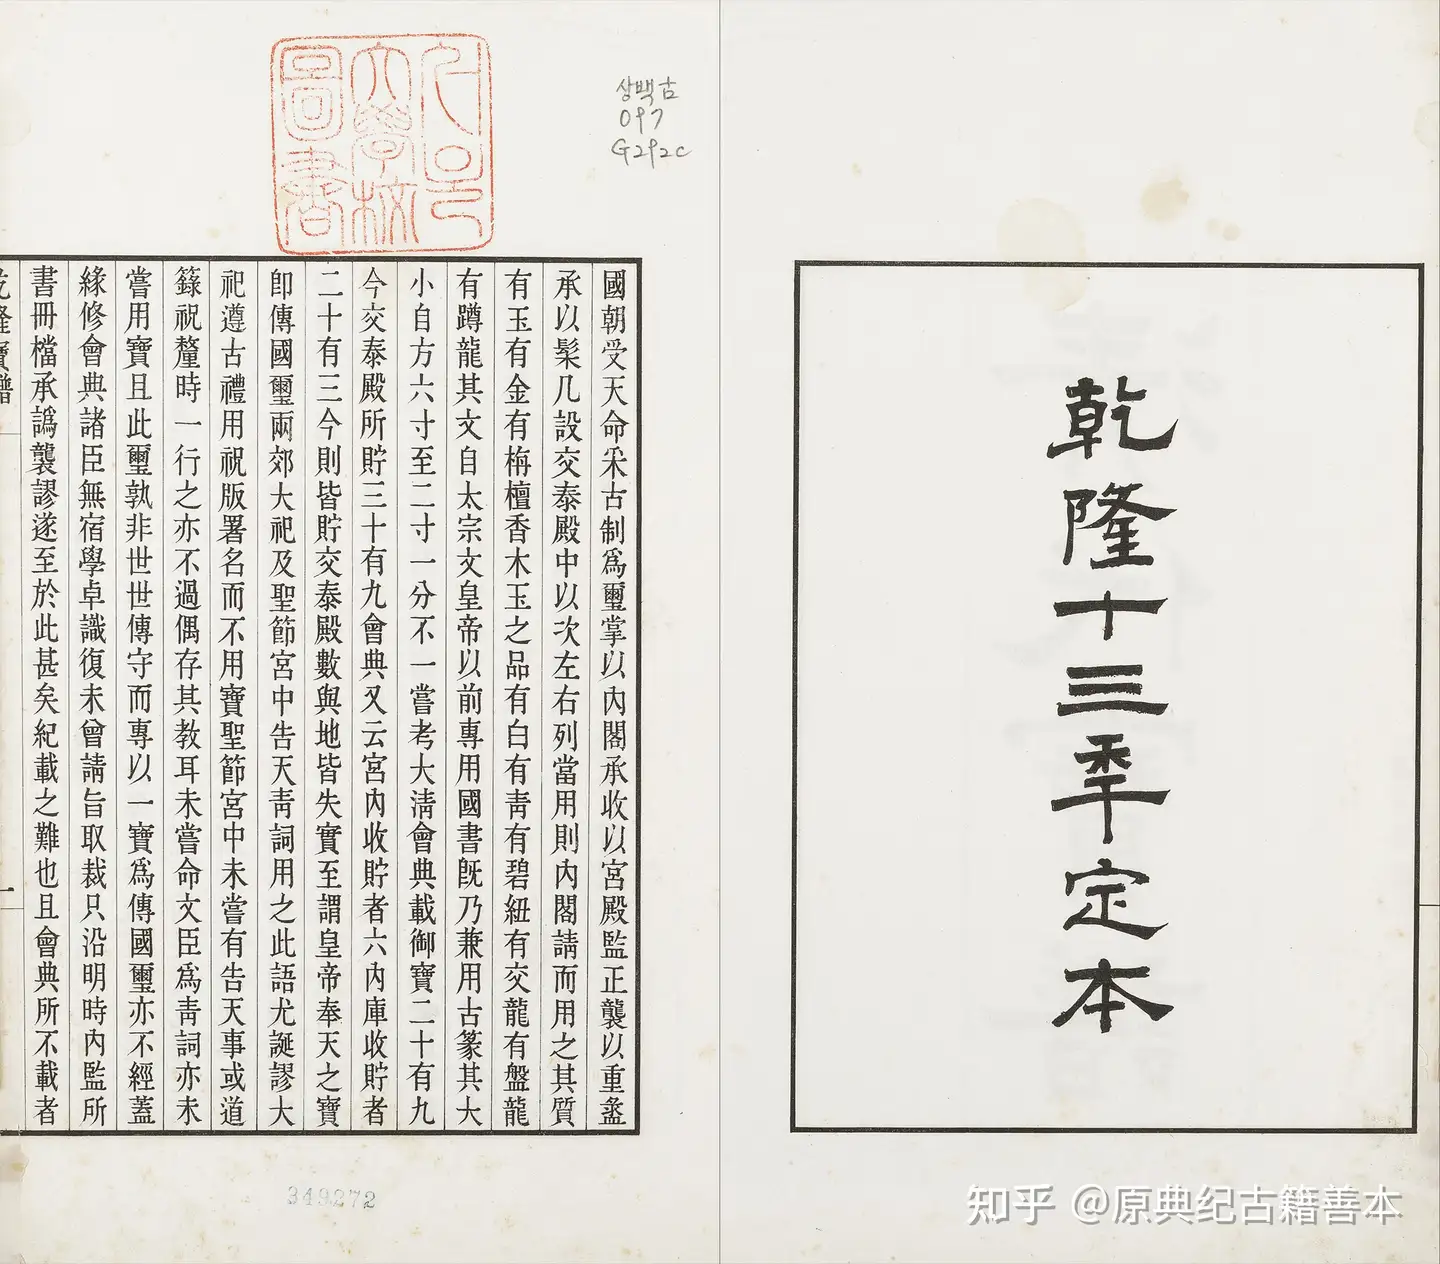 乾隆十三年定本
상백古
097
G292c
國朝受天命采古制爲璽掌以內閣承收以宮殿監正襲以重盝
承以髹几設交泰殿中以次左右列當用則內閣請而用之其質
有玉有金有栴檀香木玉之品有白有青有碧紐有交龍有盤龍
有蹲龍其文自太宗文皇帝以前專用國書旣乃兼用古篆其大
小自方六寸至二寸一分不一嘗考大淸會典載御寶二十有九
今交泰殿所貯三十有九會典又云宮內收貯者六內庫收貯者
二十有三今則皆貯交泰殿數與地皆失實至謂皇帝奉天之寶
卽傳國璽兩郊大祀及聖節宮中告天靑詞用之此語尤誕謬大
祀遵古禮用祝版署名而不用寶聖節宮中未嘗有告天事或道
籙祝釐時一行之亦不過偶存其教耳未嘗命文臣爲靑詞亦未
嘗用寶且此璽孰非世世傳守而專以一寶爲傳國璽亦不經蓋
緣修會典諸臣無宿學卓識復未曾請旨取裁只沿明時內監所
書冊檔承譌襲謬遂至於此甚矣紀載之難也且會典所不載者
乾隆寶譜
一
349272
知乎 @原典纪古籍善本